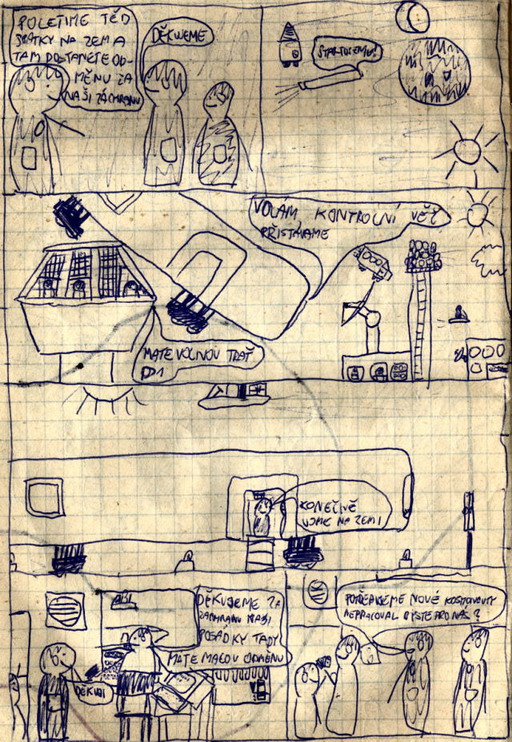 POLETIME TEĎ
ZPÁTKY NA ZEM A
TAM DOSTANETE OD-
MĚNU ZA
NAŠI ZÁCHRANU
DĚKUJEME
STARTUJEME!
VOLÁM KONTROLNÍ VĚŽ
PŘISTÁVAME
MATE VOLNOU TRAŤ
KONEČNĚ
JSME NA ZEMI
DĚKUJEME ZA
ZACHRANU NAŠI
POSADKY TADY
MATE MALOU ODMĚNU
DĚKUJI
POTŘEBUJEME NOVÉ KOSMONAUTY
NEPRACOVAL BYSTE PRO NÁS?